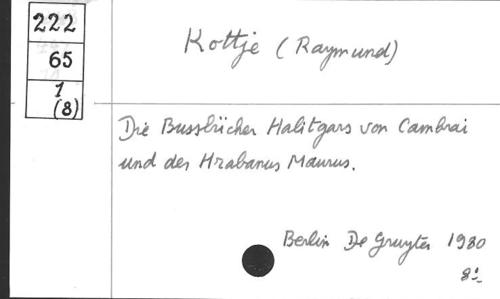 222
65
1
(8)
Kottje (Raymund)
Die Bussbücher Halitgars von Cambrai
und des Hrabanus Maurus.
Berlin De Gruyter 1980
8º